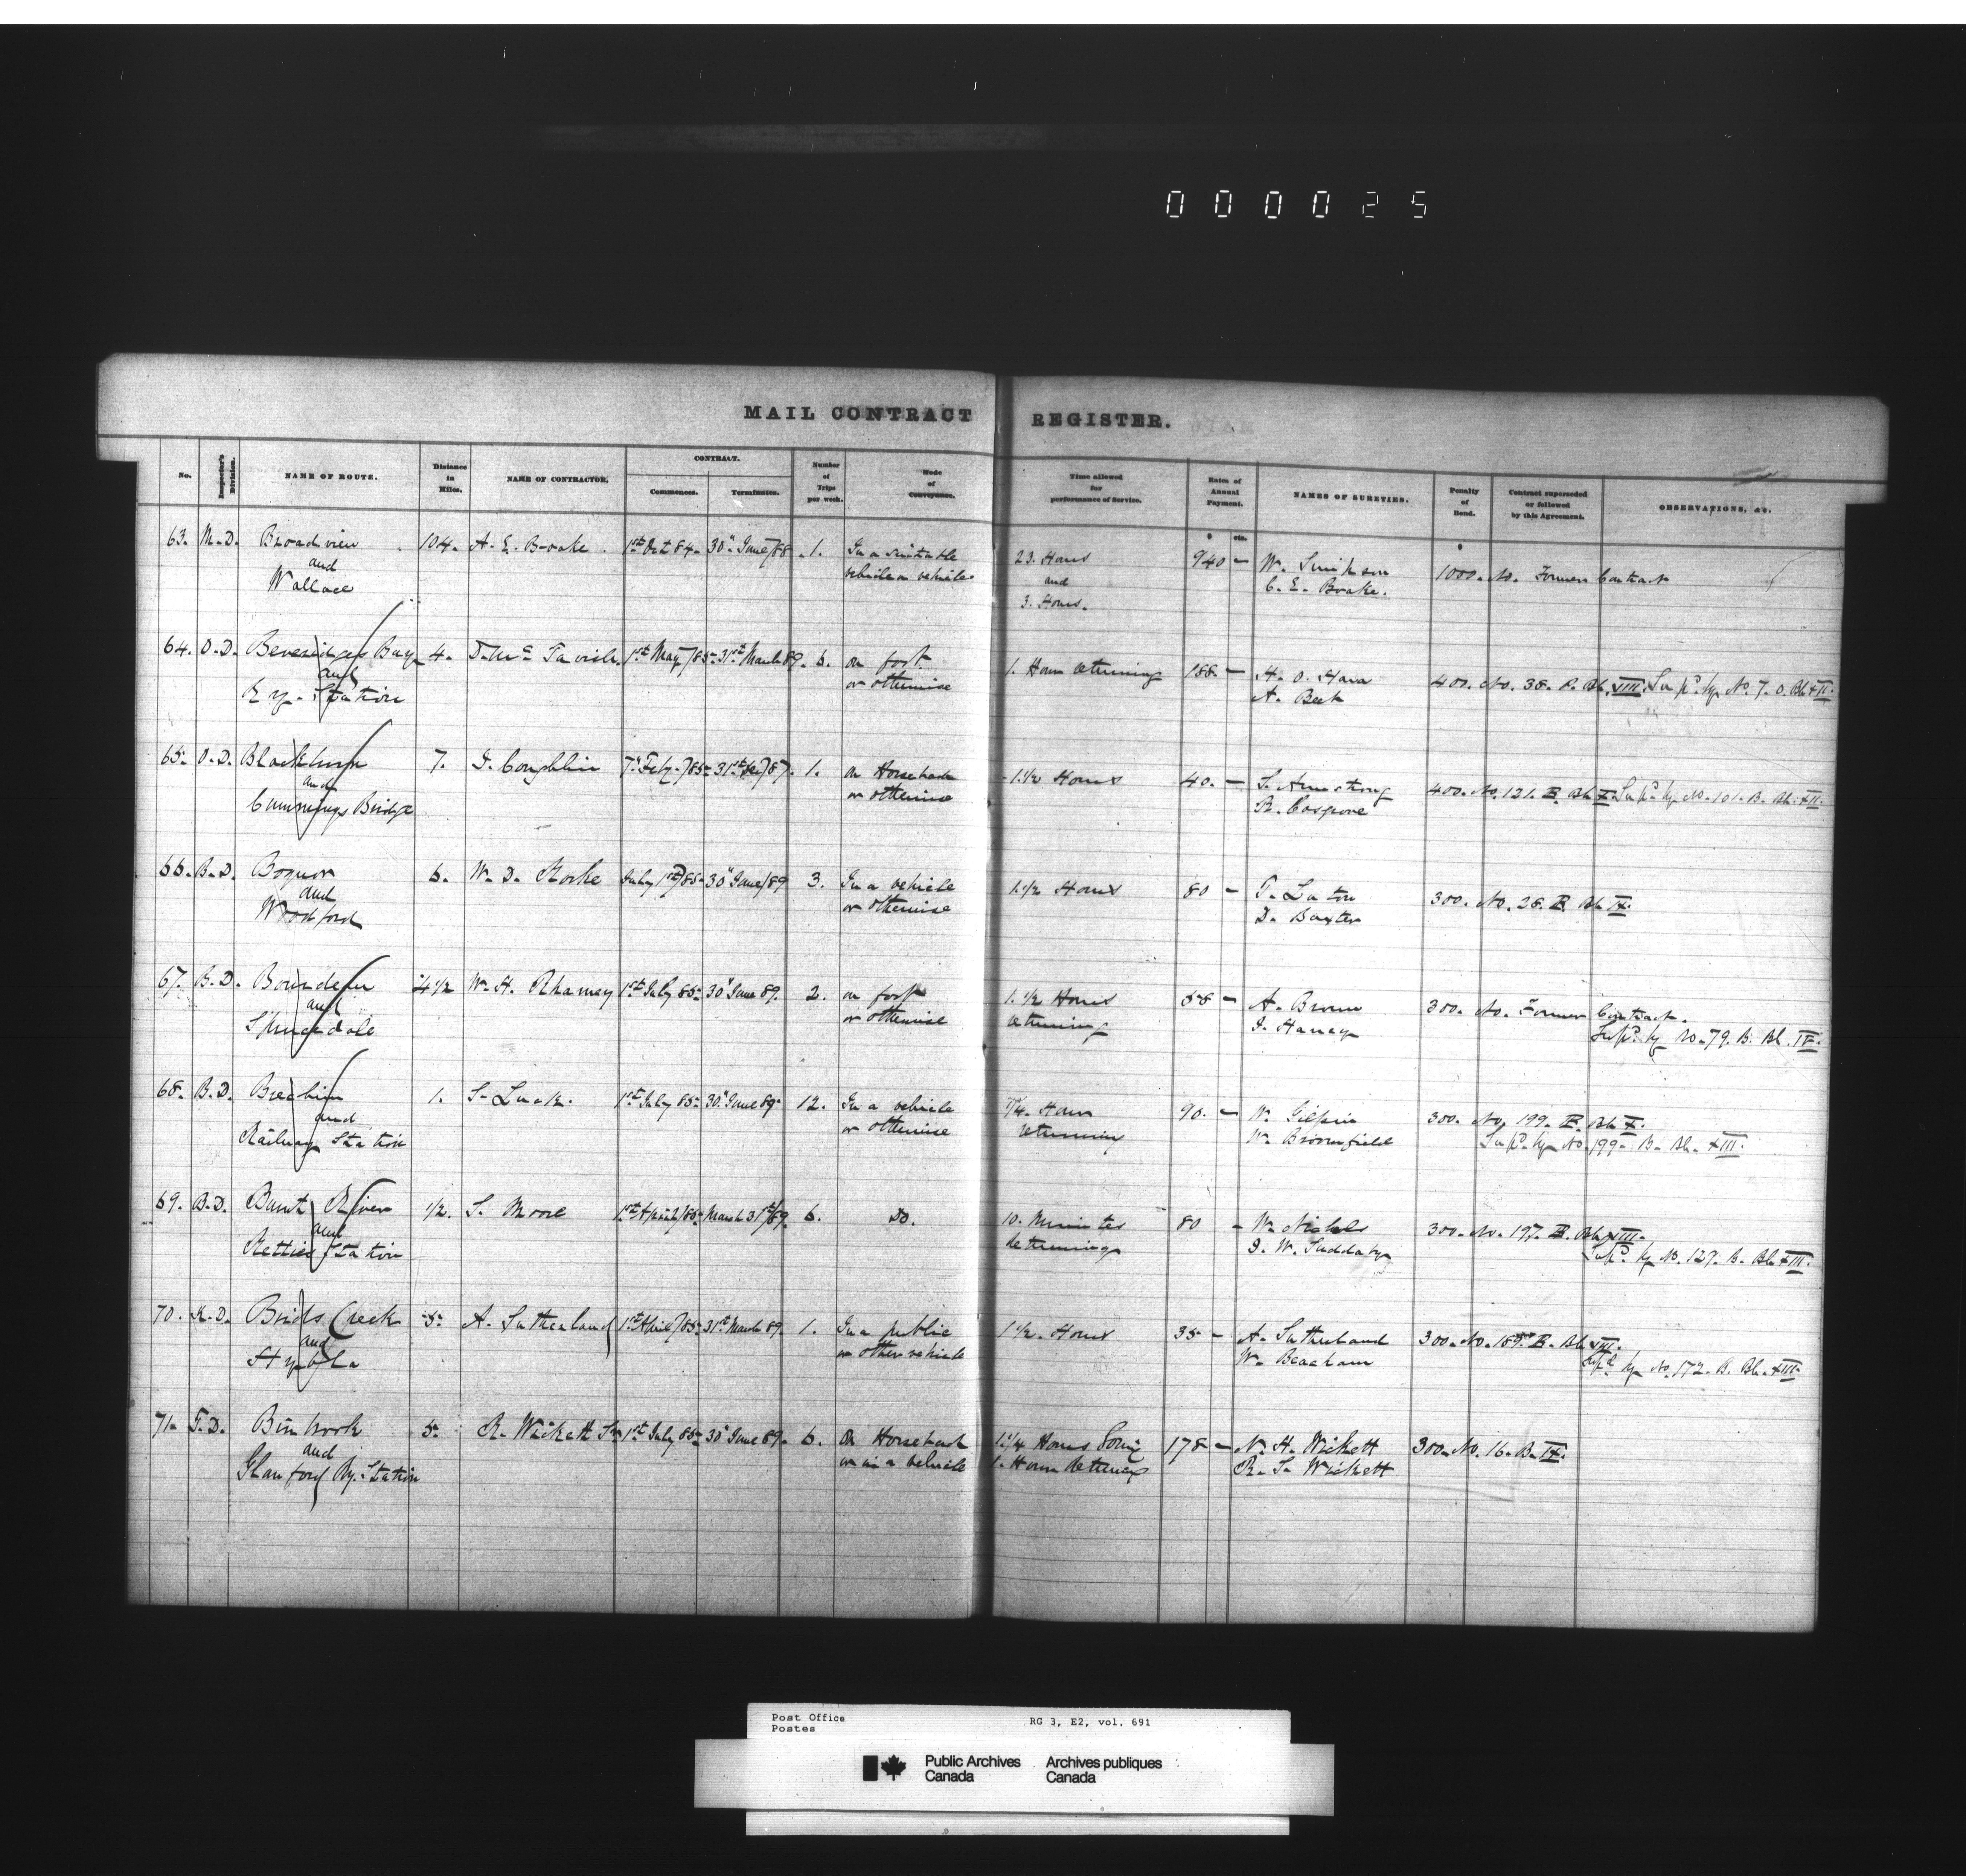 000025
MAIL CONTRACT REGISTER.
No. Inspector's Division. NAME OF ROUTE. Distance in Miles. NAME OF CONTRACTOR. CONTRACT. Commences. Terminates. Number of Trips per week. Mode of Conveyance. Time allowed for performance of Service. Rates of Annual Payment. $ cts. NAMES OF SURETIES. Penalty of Bond. $ Contract superseded or followed by this Agreement. OBSERVATIONS, &c.
63. M.D. Broadview 104. A. E. Boake. 1st Oct 84. 30" June/88. 1. In a suitable 23. Hours 940 — W. Simpson 1000. No. Former Contract
and vehicle or vehicles and C. E. Boake.
Wallace 3. Hours.
64. O.D. Beveridges Bay 4. D. McTavish. 1st May/85. 31st March 89. 6. on foot 1. Hour returning 188 — H. O. Hara 400. No. 38. Bk. VIII. Sup'd. by No. 7. O. Bk XII.
and or otherwise A. Beck
Ry. Station
65. O.D. Blackburn 7. J. Coughlin 7" Feby./85. 87. 1. on Horseback 1.1/2 Hours 40. — S. Armstrong 400. No. 121. B. Bk X. Sup'd by No. 101. B. Bk. XII.
and or otherwise R. Cosgrove
Cummings Bridge
66. B.D. Bognor 6. W. D. Rorke July 1st/85. 30" June/89 3. In a vehicle 1.1/2 Hours 80 — T. 300. No. 28. B. Bk IX.
and or otherwise D. Baxter
Woodford
67. B.D. 4 1/2 W. H. Rhamey 1st July 85. 30" June 89. 2. on foot 1.1/2 Hours 58 — A. Brown 300. No. Former Contract.
and or otherwise returning J. Haney Sup'd. by No. 79. B. Bk.
Sprucedale
68. B.D. Brechin 1. S. Luck. 1st July 85. 30" June 89. 12. In a vehicle 3/4. Hour 90. — W. Gilpin 300. No. 199. B. Bk X.
and or otherwise returning W. Broomfield Sup'd. by No. 199. B. Bk. XIII.
Railway Station
69. B.D. Burnt River 1/2. S. Moore 1st April/85. March 31st/89. 6. Do. 10. Minutes 80 — W. Nichols 300. No. 197. B. Bk. VIII.
and Returning J. W. Suddaby Sup'd. by No. 127. B. Bk XIII.
Retties Station
70. K.D. Birds Creek 5. A. Sutherland 1st April/85. 31st March 89. 1. In a public 1 1/2. Hours 35 — A. Sutherland 300. No. 159. B. Bk VIII.
and or other vehicle W. Beacham Sup'd by No. 172. B. Bk. XIII.
Hybla
71. T.D. Binbrook 5. R. Wickett Sr. 1st July 85. 30" June 89. 6. On Horseback 1.1/4 Hours Going 178 — N. H. Wickett 300. No. 16. B. IX.
and or in a vehicle 1. Hour Returning R. S. Wickett
Glanford Ry. Station
Post Office RG 3, E2, vol. 691
Postes
Public Archives Archives publiques
Canada Canada